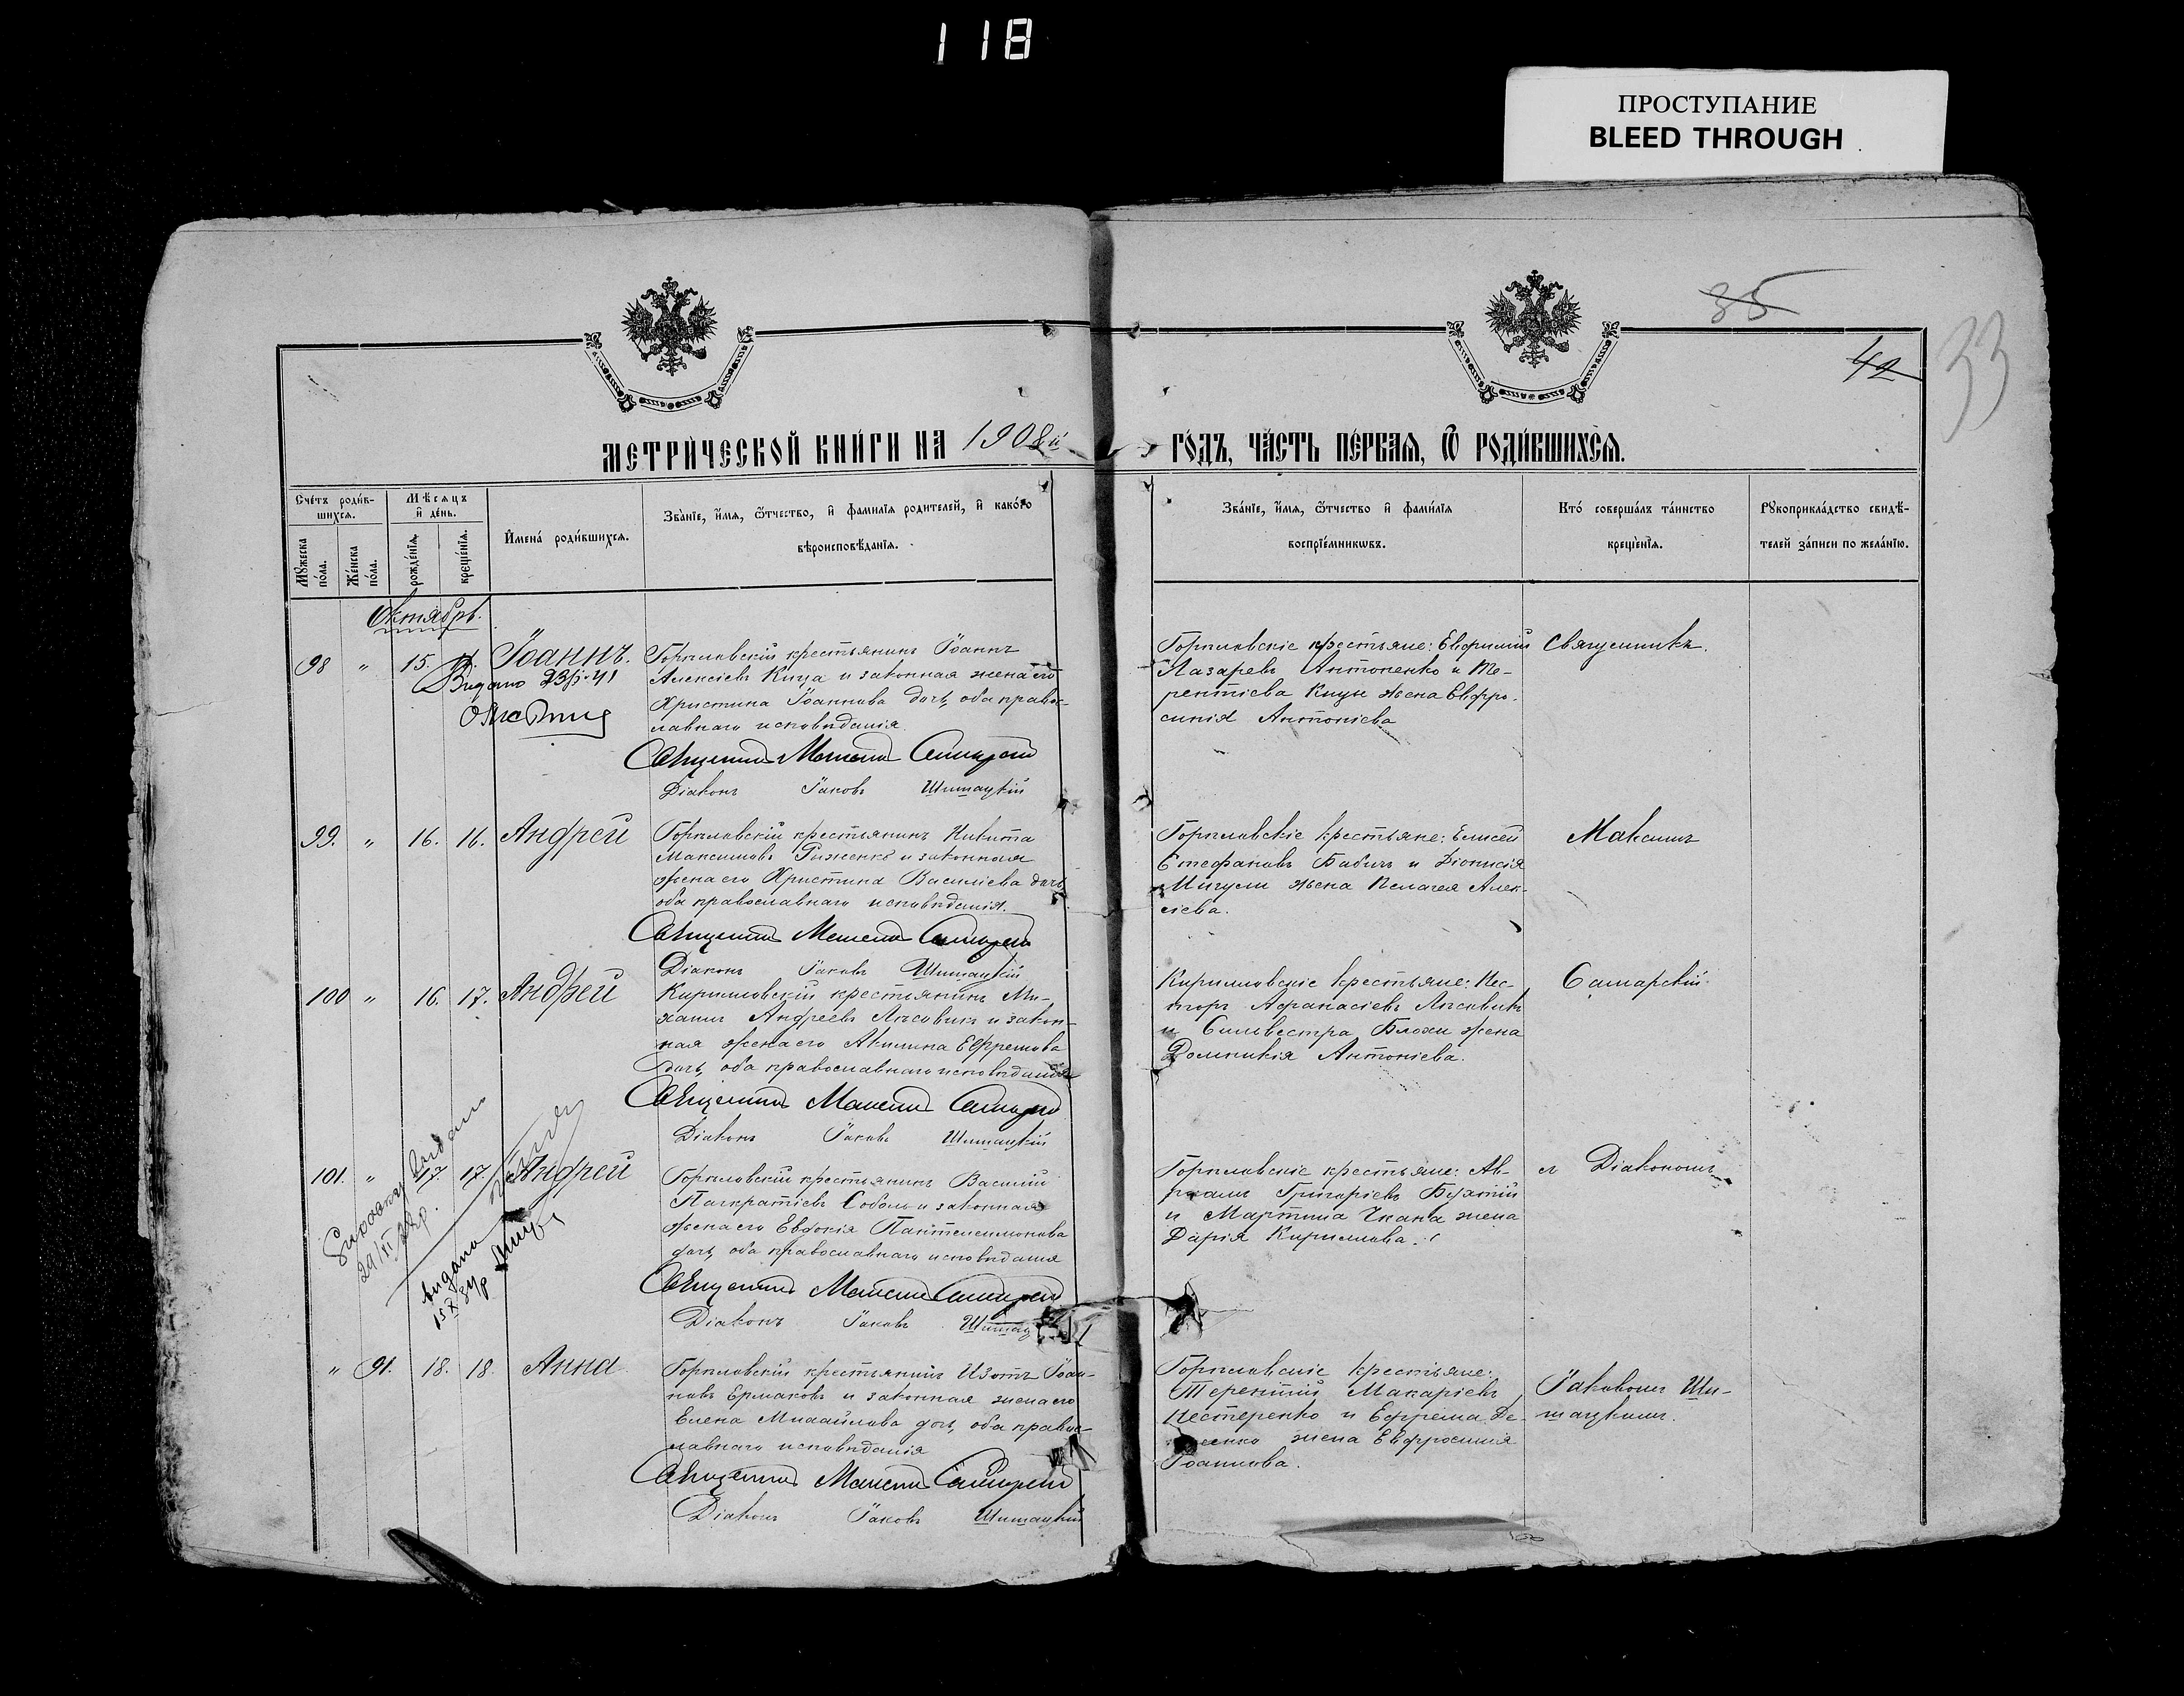 118
ПРОСТУПАНИЕ
BLEED THROUGH
35
42
33
МЕТРИ́ЧЕСКОЙ КНИ́ГИ НА 1908й ГО́ДЪ, ЧА́СТЬ ПЕ́РВАЯ, Ѿ РОДИ́ВШИХСЯ.
Счётъ роди́в-
шихся.
Мѣсяцъ
и де́нь.
Мꙋ́жеска по́ла.
Же́нска по́ла.
рожде́нїя.
креще́нїя.
Имена́ роди́вшихся.
Зва́нїе, и́мя, ѻ҆́тчество, и фами́лїя родителей, и како́го
вѣроисповѣ́данїя.
Зва́нїе, и́мя, ѻ҆́тчество и фами́лїя
воспрїе́мниковъ.
Кто́ соверша́лъ та́инство
креще́нїя.
Рꙋкоприкла́дство свидѣ́-
телей за́писи по жела́нїю.
Октябрь.
98 " 15. Іоаннъ.
Гориловскій крестьянинъ Іоаннъ
Алексіевъ Куца и законная жена его
Христина Іоаннова дочь, оба право-
славнаго исповѣданія.
Священникъ Максимъ Самарскій
Діаконъ Іаковъ Шишацкій
Гориловскіе крестьяне: Евфимій
Лазаревъ Антоненко и Те-
рентіева Куцы жена Евфро-
синія Антоніева
Священникъ
99. " 16. 16. Андрей
Гориловскій крестьянинъ Никита
Максимовъ Рыженко и законная
жена его Христина Василіева дочь
оба православнаго исповѣданія.
Священникъ Максимъ Самарскій
Діаконъ Іаковъ Шишацкій
Гориловскіе крестьяне: Елисей
Стефановъ Бабичъ и Діонисія
жена Пелагея Алек-
сіева.
Максимъ
100 " 16. 17. Андрей
Кирилловскій крестьянинъ Ми-
хаилъ Андреевъ Лѣсовикъ и закон-
ная жена его Акилина Ефремова
дочь, оба православнаго исповѣданія
Священникъ Максимъ Самарскій
Діаконъ Іаковъ Шишацкій
Кирилловскіе крестьяне: Нес-
торъ Афанасіевъ Лѣсовикъ
и Сильвестра Блохи жена
Домникія Антоніева.
Самарскій
101. " 17. 17. Андрей
29/XI 28р.
видано
15 X 34р
Гориловскій крестьянинъ Василій
Панкратіевъ Соболь и законная
жена его Евдокія Пантелеимонова
дочь, оба православнаго исповѣданія
Священникъ Максимъ Самарскій
Діаконъ Іаковъ Шишац
Гориловскіе крестьяне: Ав-
раамъ Григоріевъ
и Мартина жена
Дарія Кириллова.
съ Діакономъ
" 91. 18. 18. Анна
Гориловскій крестьянинъ Изотъ Іоан-
новъ Ермаковъ и законная жена его
Елена Михайлова дочь, оба право-
славнаго исповѣданія
Священникъ Максимъ Самарскій
Діаконъ Іаковъ Шишацкій
Гориловскіе крестьяне:
Терентій Макаріевъ
Нестеренко и Ефрема Де-
енко жена Евфросинія
Іоаннова.
Іаковомъ Ши-
шацкимъ.